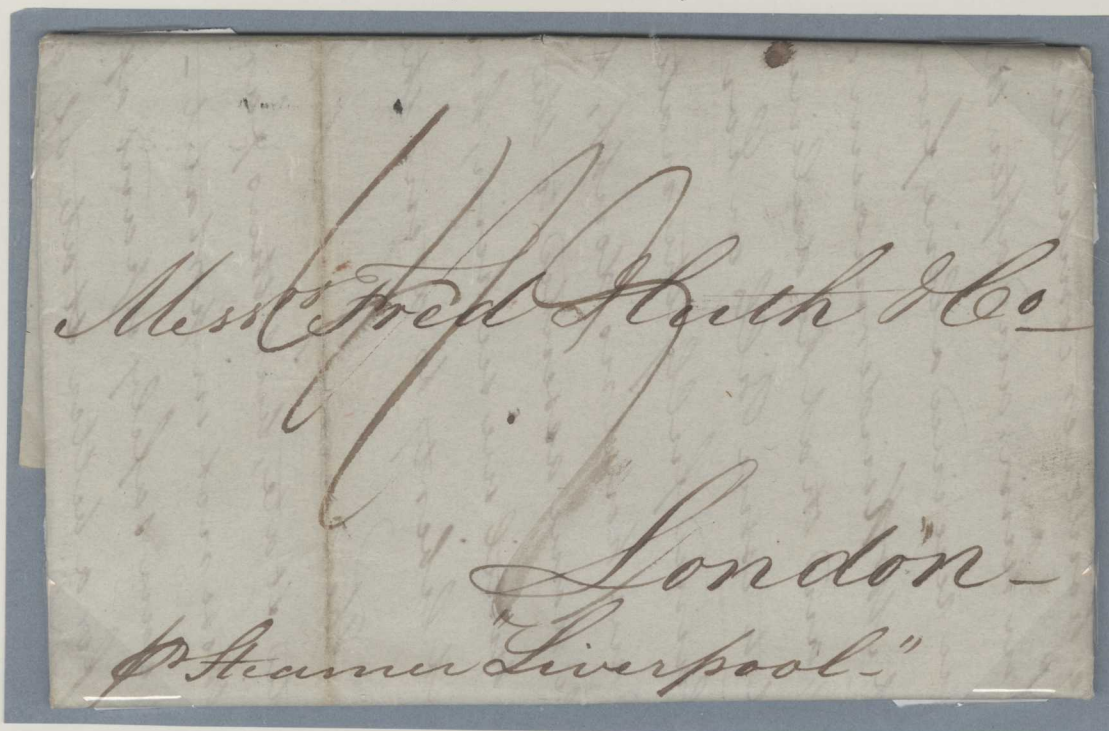 Messrs Fred Huth & Co
London
pr Steamer "Liverpool"